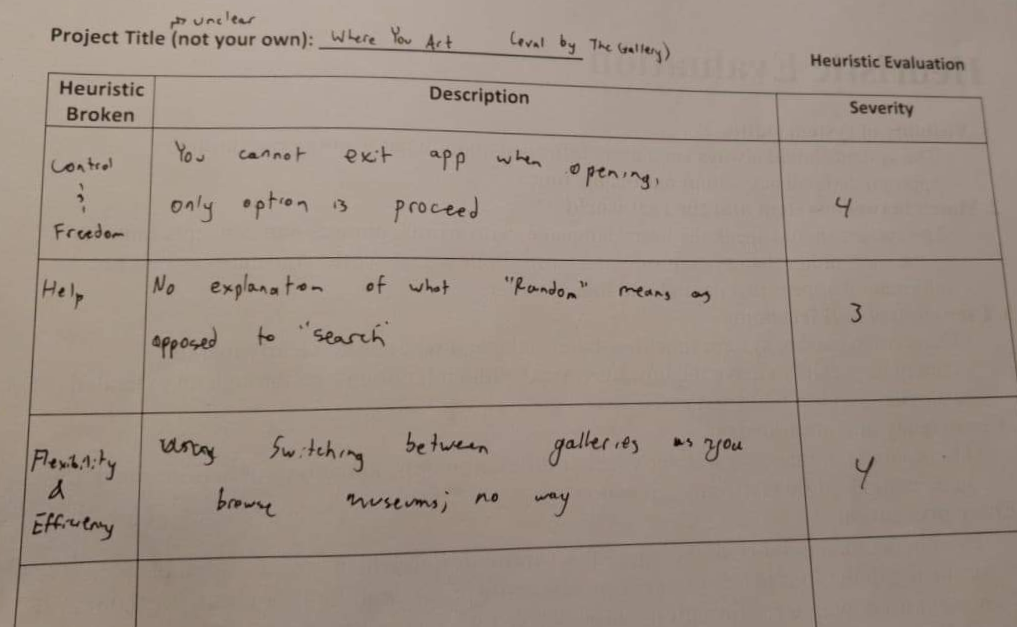 → unclear
Project Title (not your own): Where You Art (eval by The Gallery)
Heuristic Evaluation
Heuristic Broken
Description
Severity
Control
&
Freedom
You cannot exit app when opening,
only option is proceed
4
Help
No explanation of what "Random" means as
opposed to "search"
3
Flexibility
&
Efficiency
Switching between galleries as you
browse museums; no way
4